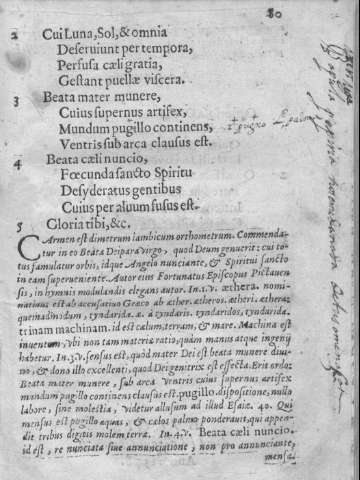 80
2 Cui Luna, Sol, & omnia
Deseruiunt per tempora,
Perfusa cæli gratia,
Gestant puellæ viscera.
3 Beata mater munere,
Cuius supernus artifex,
Mundum pugillo continens,
Ventris sub arca clausus est.
4 Beata cæli nuncio,
Fœcunda sancto Spiritu
Desyderatus gentibus
Cuius per aluum fusus est.
5 Gloria tibi, &c.
CArmen est dimetrum iambicum orthometrum. Commenda-
tur in eo Beata Deipara virgo, quod Deum genuerit: cui to-
tus famulatur orbis, idque Angelo nunciante, & Spiritu sancto
in eam superueniente. Autor eius Fortunatus Episcopus Pictauen-
sis, in hymnis modulandis elegans autor. In .1. v. æthera. nomi-
natiuus est ab accusatiuo Græco ab æther. ætheros. ætheri. æthera:
quemadmodum, tyndarida. æ. à tyndaris. tyndaridos, tyndarida.
trinam machinam. id est cælum, terram, & mare. Machina est
inuentum, vbi non tam materiæ ratio, quàm manus atque ingenij
habetur. In .3. v. sensus est, quòd mater Dei est beata munere diui-
no, & dono illo excellenti, quod Dei genitrix est effecta. Erit ordo:
Beata mater munere, sub arca ventris cuius supernus artifex
mundum pugillo continens clausus est. pugillo. dispositione, nullo
labore, sine molestia, videtur allusum ad illud Esaiæ. 40. Qui
mensus est pugillo aquas, & cælos palmo ponderauit, qui appen-
dit tribus digitis molem terræ. In .4. v. Beata cæli nuncio.
id est, re nunciata siue annunciatione, non pro annunciante,
mensa.